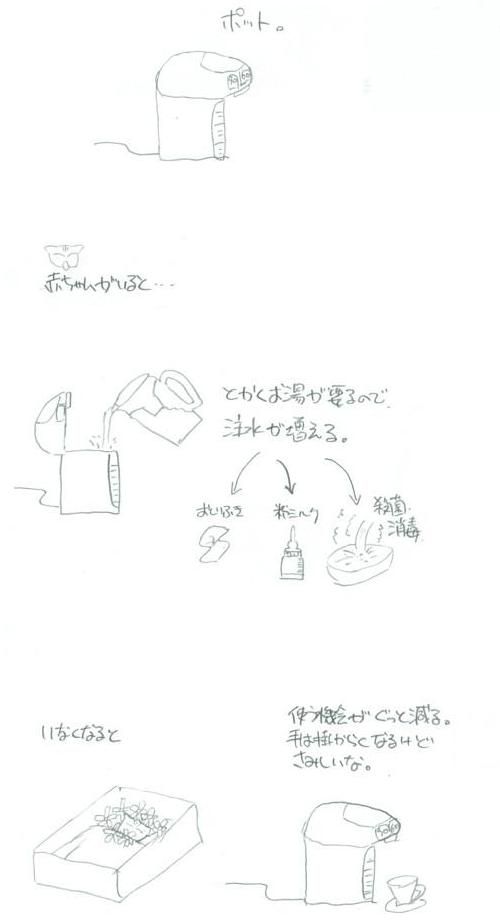 ポット。
赤ちゃんがいると…
とかくお湯が要るので
注水が増える。
おしりふき
粉ミルク
殺菌
消毒
いなくなると
使う機会がぐっと減る。
手は掛からくなるけど
さみしいな。